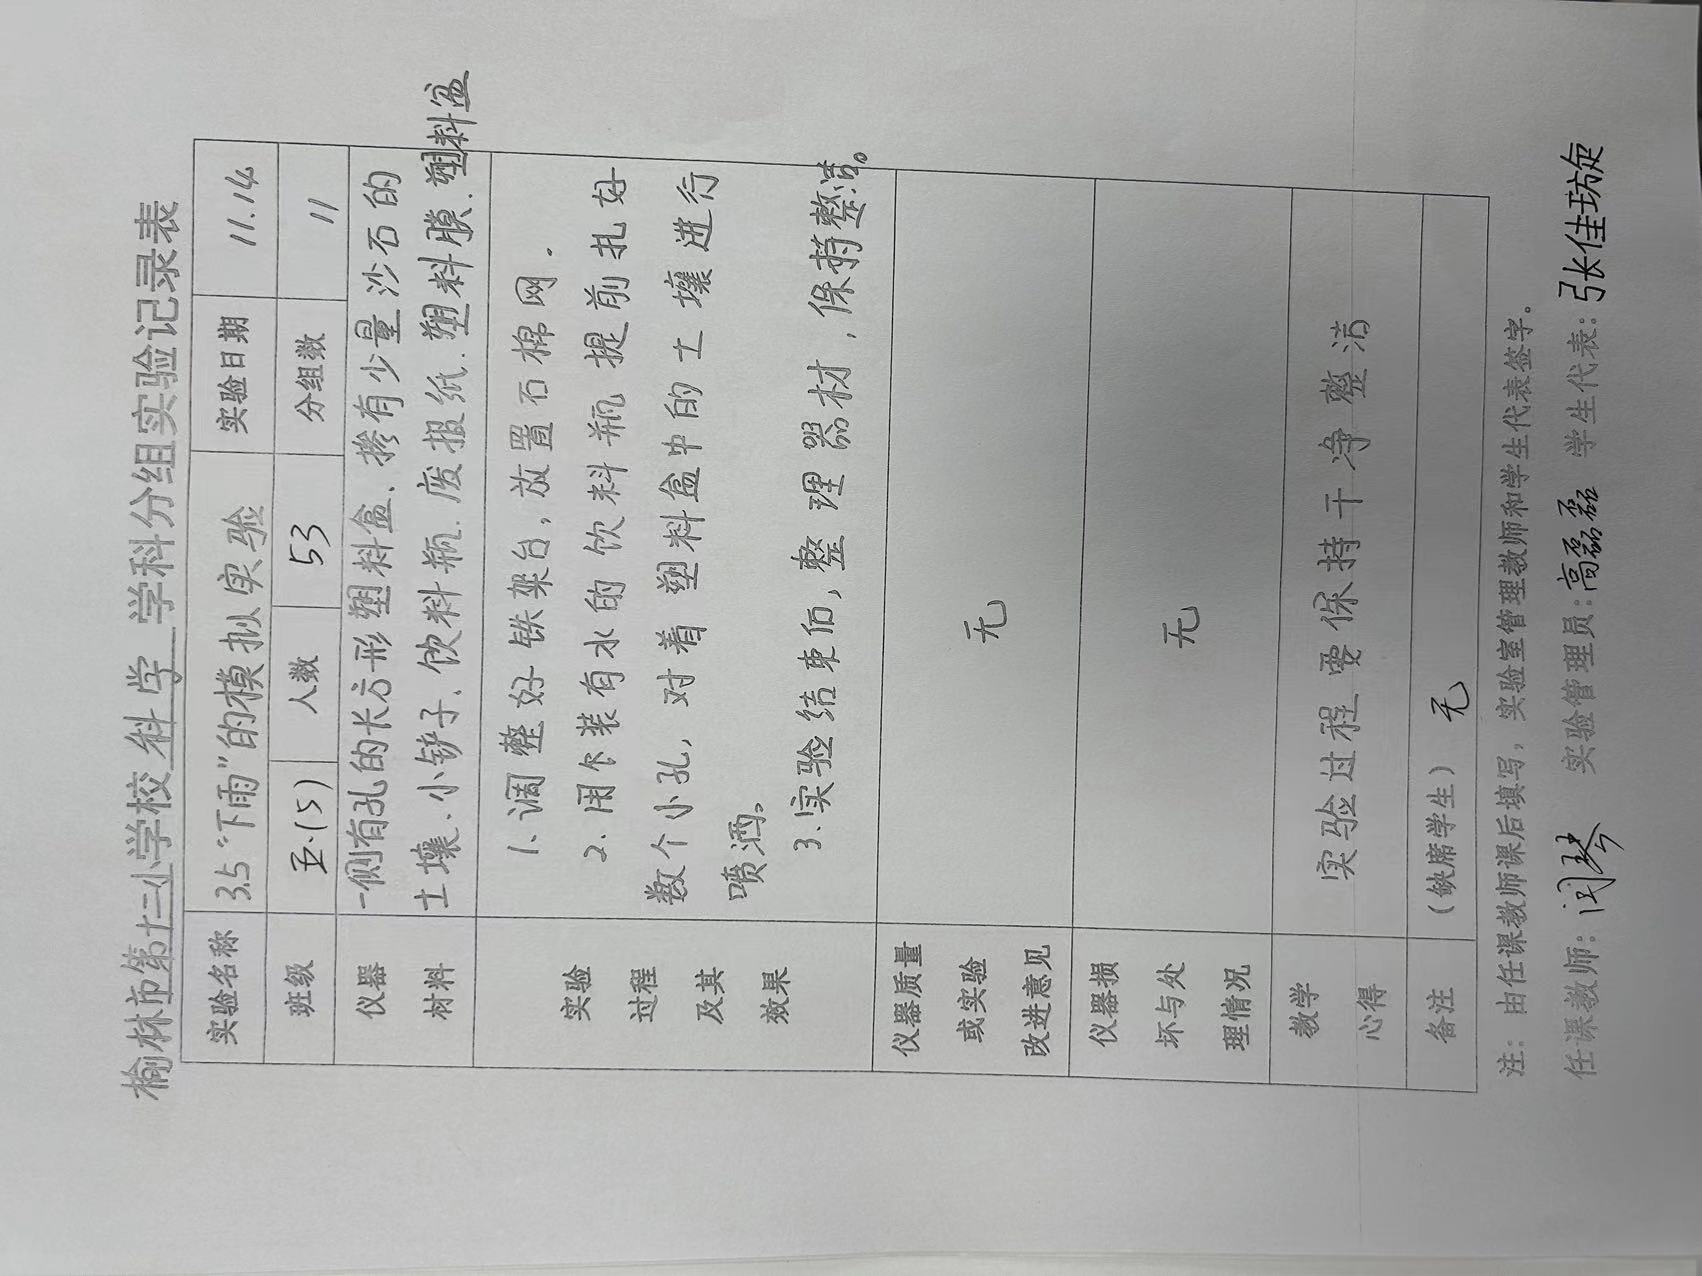 榆林市第十三小学校 科学 学科分组实验记录表
实验名称 3.5“下雨”的模拟实验 实验日期 11.14
班级 五.(5) 人数 53 分组数 11
仪器 一侧有孔的长方形塑料盒、掺有少量沙石的
材料 土壤、小铲子、饮料瓶、废报纸、塑料膜、塑料盆
实验
过程
及其
效果
1、调整好铁架台，放置石棉网.
2.用个装有水的饮料瓶提前扎好
数个小孔，对着塑料盒中的土壤进行
喷洒。
3.实验结束后，整理器材，保持整洁。
仪器质量
或实验
改进意见
无
仪器损
坏与处
理情况
无
教学
心得
实验过程要保持干净整洁
备注 (缺席学生) 无
注：由任课教师课后填写，实验室管理教师和学生代表签字.
任课教师：闵琴 实验管理员:高磊磊 学生代表:张佳璇